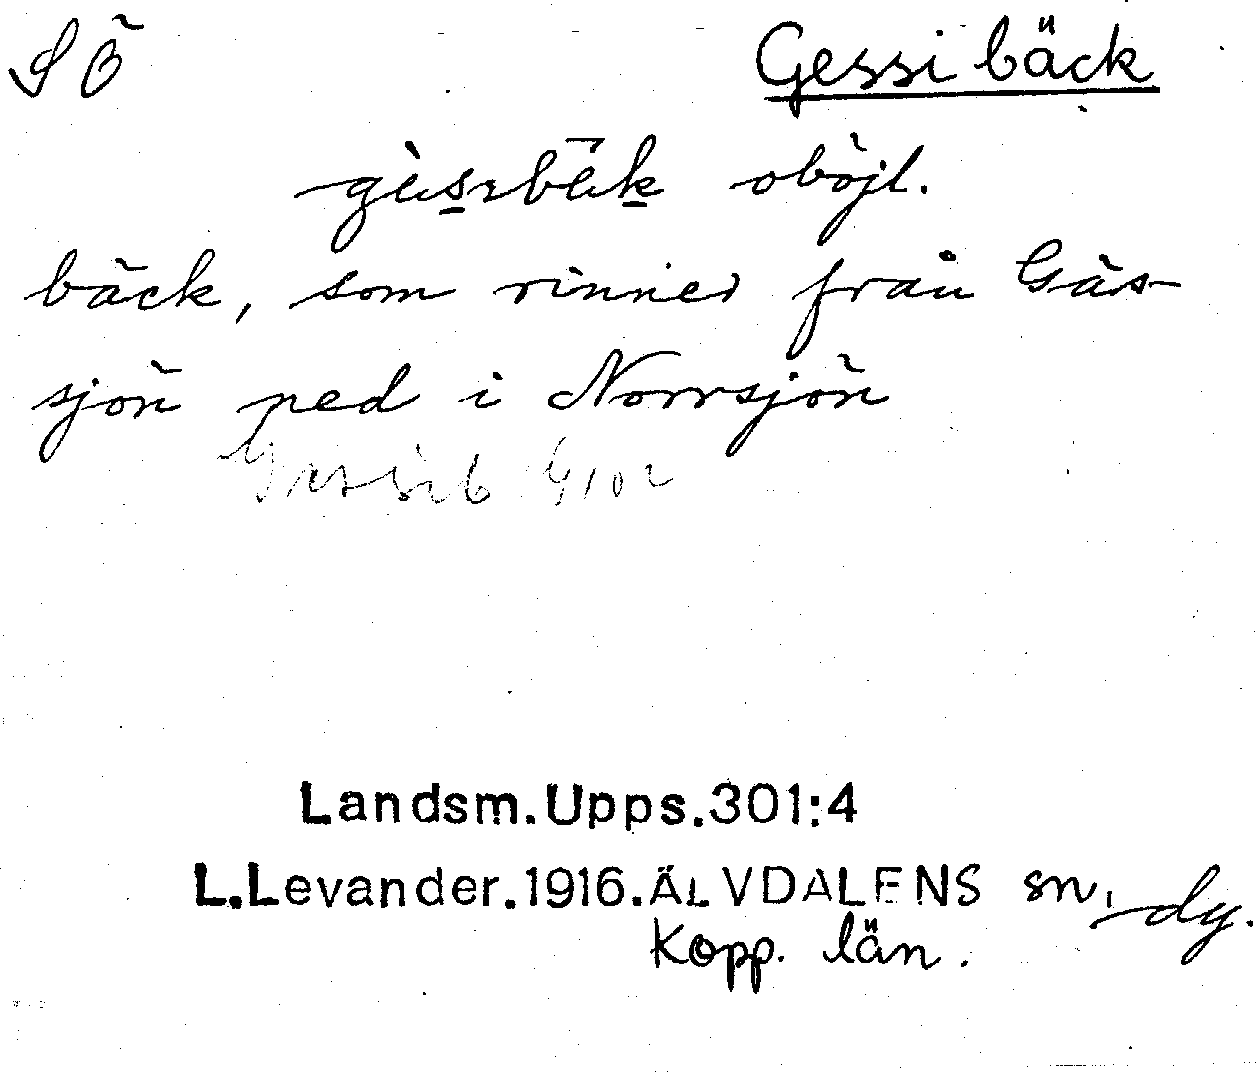 SÖ
Gessi bäck
oböjl.
bäck, som rinner från Gäs-
sjön ned i Norrsjön
Landsm.Upps.301:4
L.Levander.1916.ÄLVDALENS sn, dy.
Kopp. län.